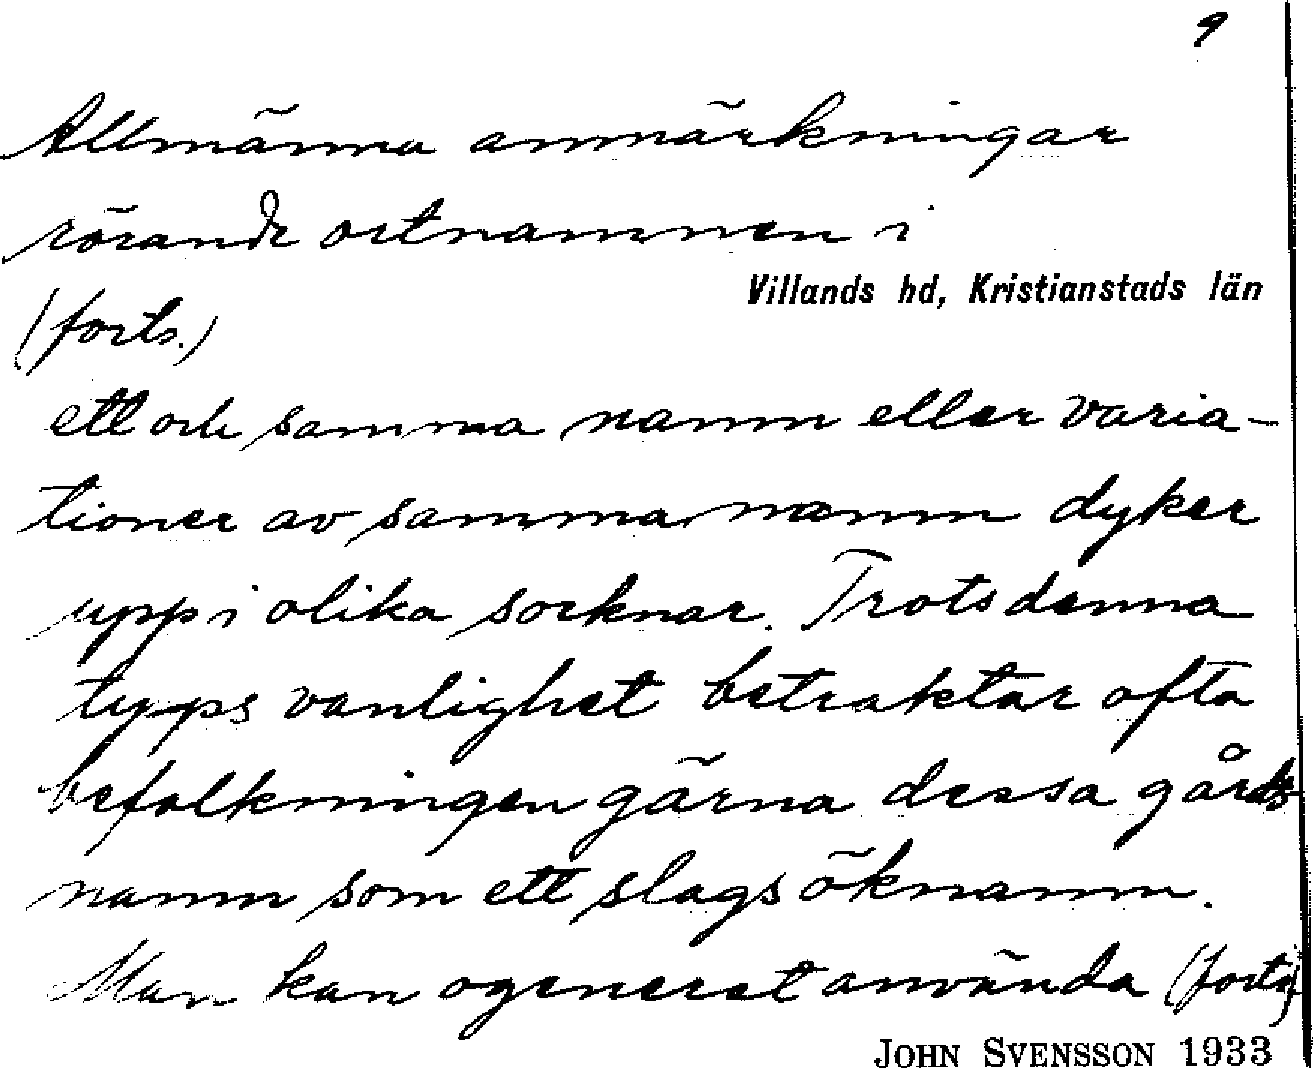 9
Allmänna anmärkningar
rörande ortnamnen i
Villands hd, Kristianstads län
(forts.)
ett och samma namn eller varia-
tioner av samma namn dyker
upp i olika socknar. Trots denna
typs vanlighet betraktar ofta
befolkningen gärna dessa gårds-
namn som ett slags öknamn.
Man kan ogenerat använda (forts.)
JOHN SVENSSON 1933